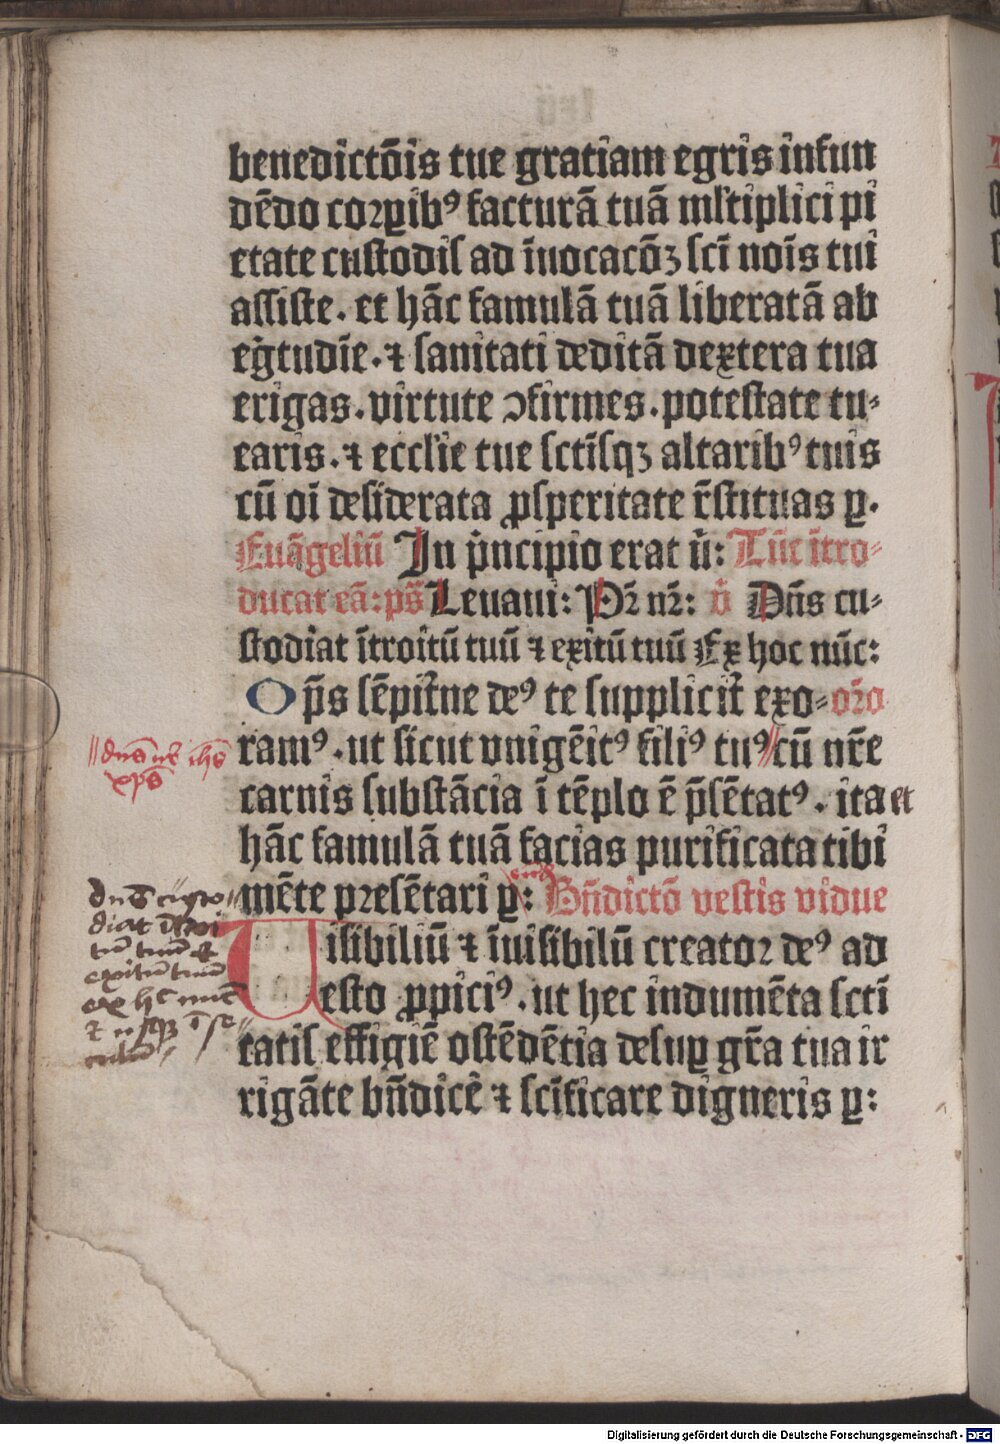 benedictōis tue gratiam egris infun
dēdo corꝑibꝰ facturā tuā ml̄tiplici pi
etate custodis ad īuocacōꝫ scī noīs tui
assiste. et hāc famulā tuā liberatā ab
egͥtudīe. ⁊ sanitati deditā dextera tua
erigas. virtute ꝯfirmes. potestate tu⸗
earis. ⁊ eccl'ie tue sctīsqꝫ altaribꝰ tuis
cū oī desiderata ꝓsperitate r̄stituas ꝑ.
Euāgeliū In pͥncipio erat v̄: Tūc ītro⸗
ducat eā: ps̄ Leuaui: Pr̄ nr̄: v̄ Dn̄s cu⸗
stodiat ītroitū tuū ⁊ exitū tuū Ex hoc nūc:
Op̄s sēpit̄ne deꝰ te supplicit̄ exo⸗ or̄o
ramꝰ. ut sicut vnigēitꝰ filiꝰ tuꝰ cū nr̄e
carnis substācia ī tēplo ē p̄sētatꝰ. ita et
hāc famulā tuā facias purificata tibi
mēte presētari ꝑ: Bn̄dictō vestis vidue
Uisibiliū ⁊ īuisibilū creator deꝰ ad
esto ꝓpiciꝰ. ut hec indumēta sctī
tatis effigiē ostēdētia desuꝑ gr̄a tua ir
rigāte bn̄dicē ⁊ scīficare digneris ꝑ:
dn̄s nr̄ ihs̄
xps̄
dn̄s custo
diat ītroi
tū tuū et
exitū tuū
ex hͦc nūc
⁊ usqꝫ ī se
culū
Digitalisierung gefördert durch die Deutsche Forschungsgemeinschaft - DFG